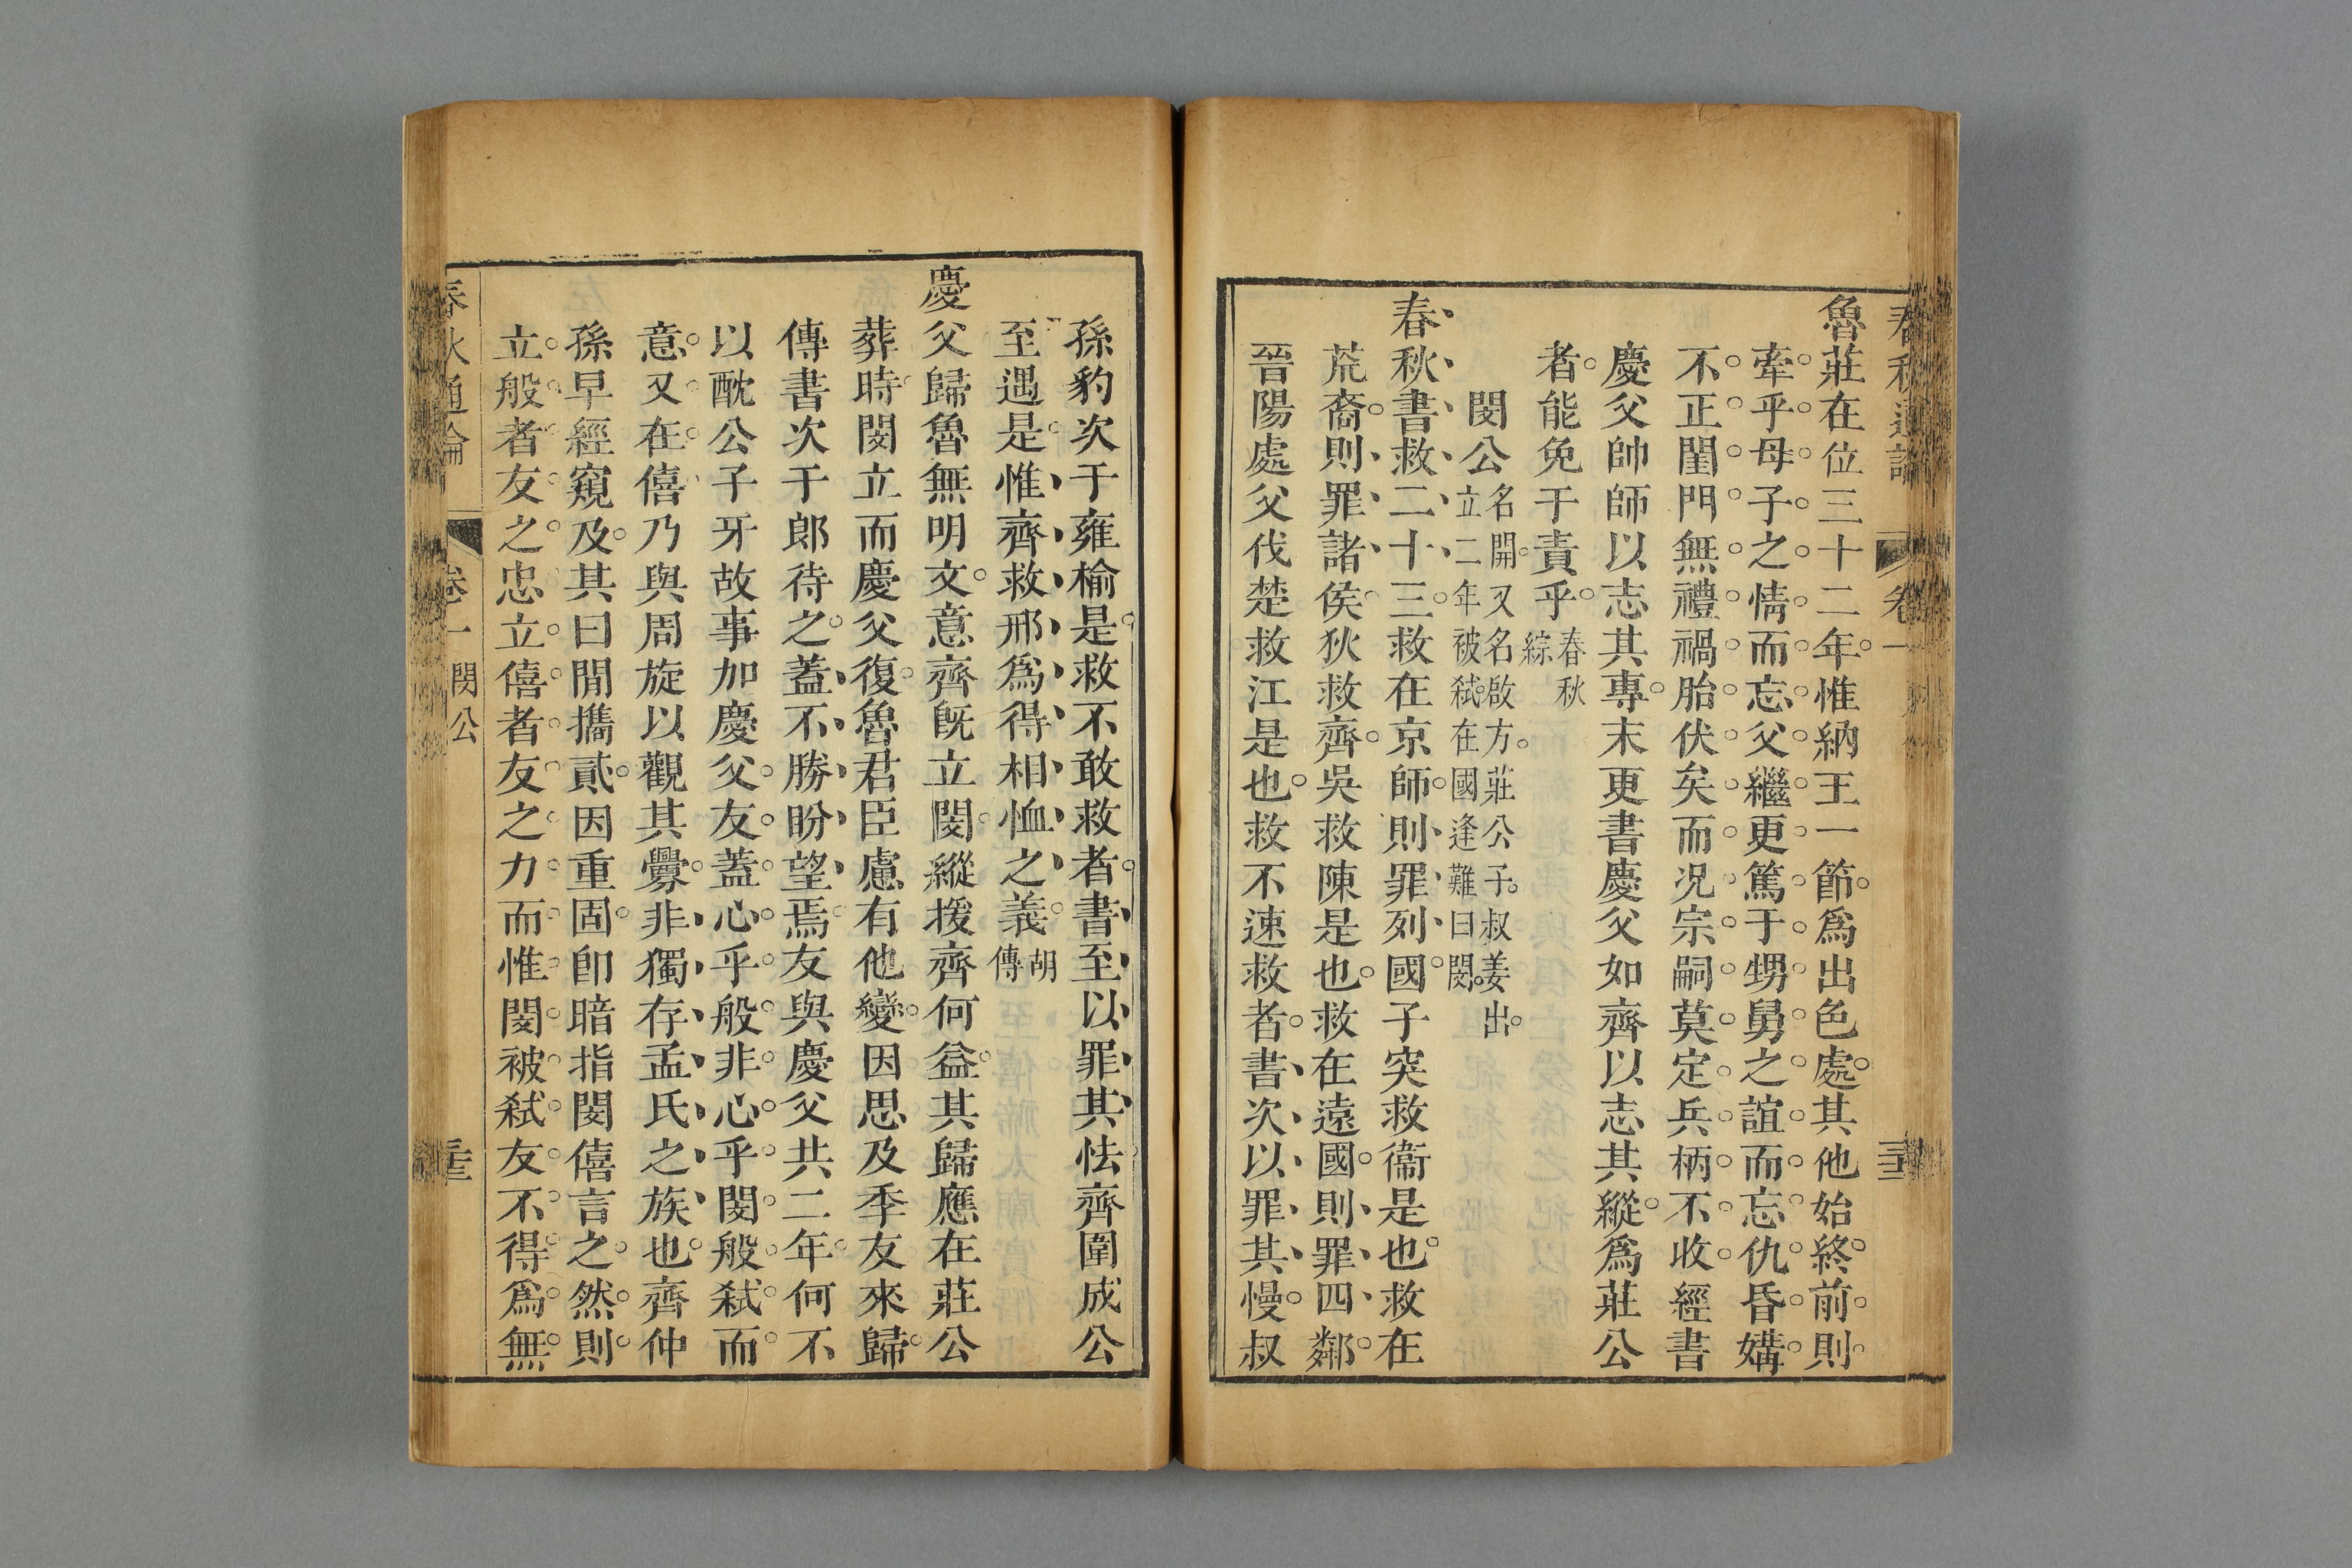 魯莊在位三十二年惟納王一節爲出色處其他始終前則
牽乎母子之情而忘父繼更篤于甥舅之誼而忘仇昏媾
不正閨門無禮禍胎伏矣而况宗嗣莫定兵柄不收經書
慶父帥師以志其專末更書慶父如齊以志其縱爲莊公
者能免于責乎春秋綜
閔公名開又名啟方莊公子叔姜出立二年被弑在國逢難曰閔
春秋書救二十三救在京師則罪列國子突救衞是也救在
荒裔則罪諸侯狄救齊吳救陳是也救在遠國則罪四鄰
晉陽處父伐楚救江是也救不速救者書次以罪其慢叔
孫豹次于雍榆是救不敢救者書至以罪其怯齊圍成公
至遇是惟齊救邢爲得相恤之義胡傳
慶父歸魯無明文意齊旣立閔縱援齊何益其歸應在莊公
葬時閔立而慶父復魯君臣慮有他變因思及季友來歸
傳書次于郎待之蓋不勝盼望焉友與慶父共二年何不
以酖公子牙故事加慶父友蓋心乎般非心乎閔般弑而
意又在僖乃與周旋以觀其釁非獨存孟氏之族也齊仲
孫早經窺及其曰閒攜貳因重固卽暗指閔僖言之然則
立般者友之忠立僖者友之力而惟閔被弑友不得爲無
春秋通論
卷一
閔公